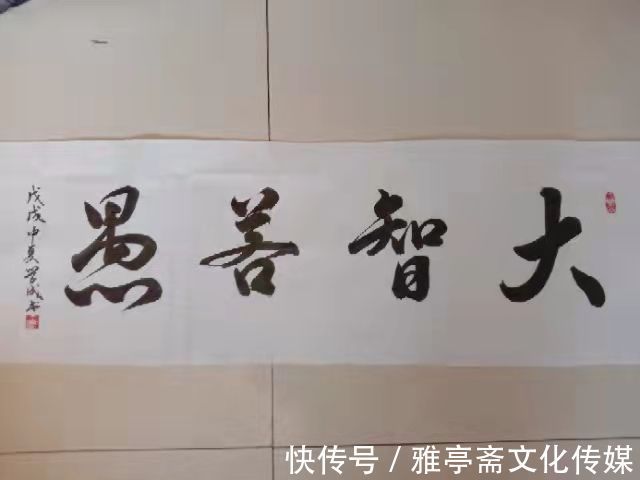 大智若愚
戊戌中夏
快传号／雅亭斋文化传媒